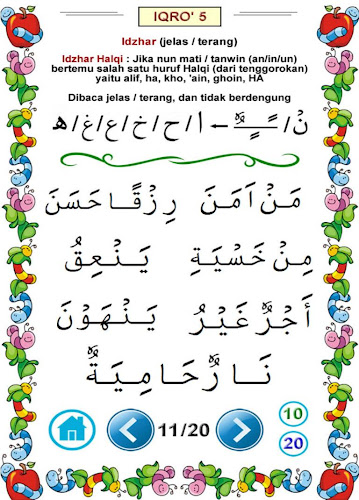 IQRO' 5
Idzhar (jelas / terang)
Idzhar Halqi : Jika nun mati / tanwin (an/in/un)
bertemu salah satu huruf Halqi (dari tenggorokan)
yaitu alif, ha, kho, 'ain, ghoin, HA
Dibaca jelas / terang, dan tidak berdengung
نْ / ـًـٍـٌ ← ا / ح / خ / ع / غ / ه
مَنْ اَمَنَ رِزْقًا حَسَنَ
مِنْ خَسْيَةِ يَنْعِقُ
أَجْرٌ غَيْرُ يَنْهَوْنَ
نَارٌ حَامِيَةٌ
11/20
10
20